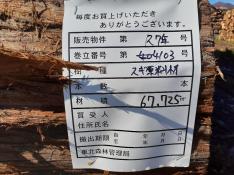 毎度お買上げいただき
ありがとうございます。
販売物件 第 ス7年 号
巻立番号 第 404103 号
樹種 スギ原料材
本数 本
材積 67,725 m³
買受人
住所氏名
搬出期限 自 年 月 日
至 年 月 日
東北森林管理局